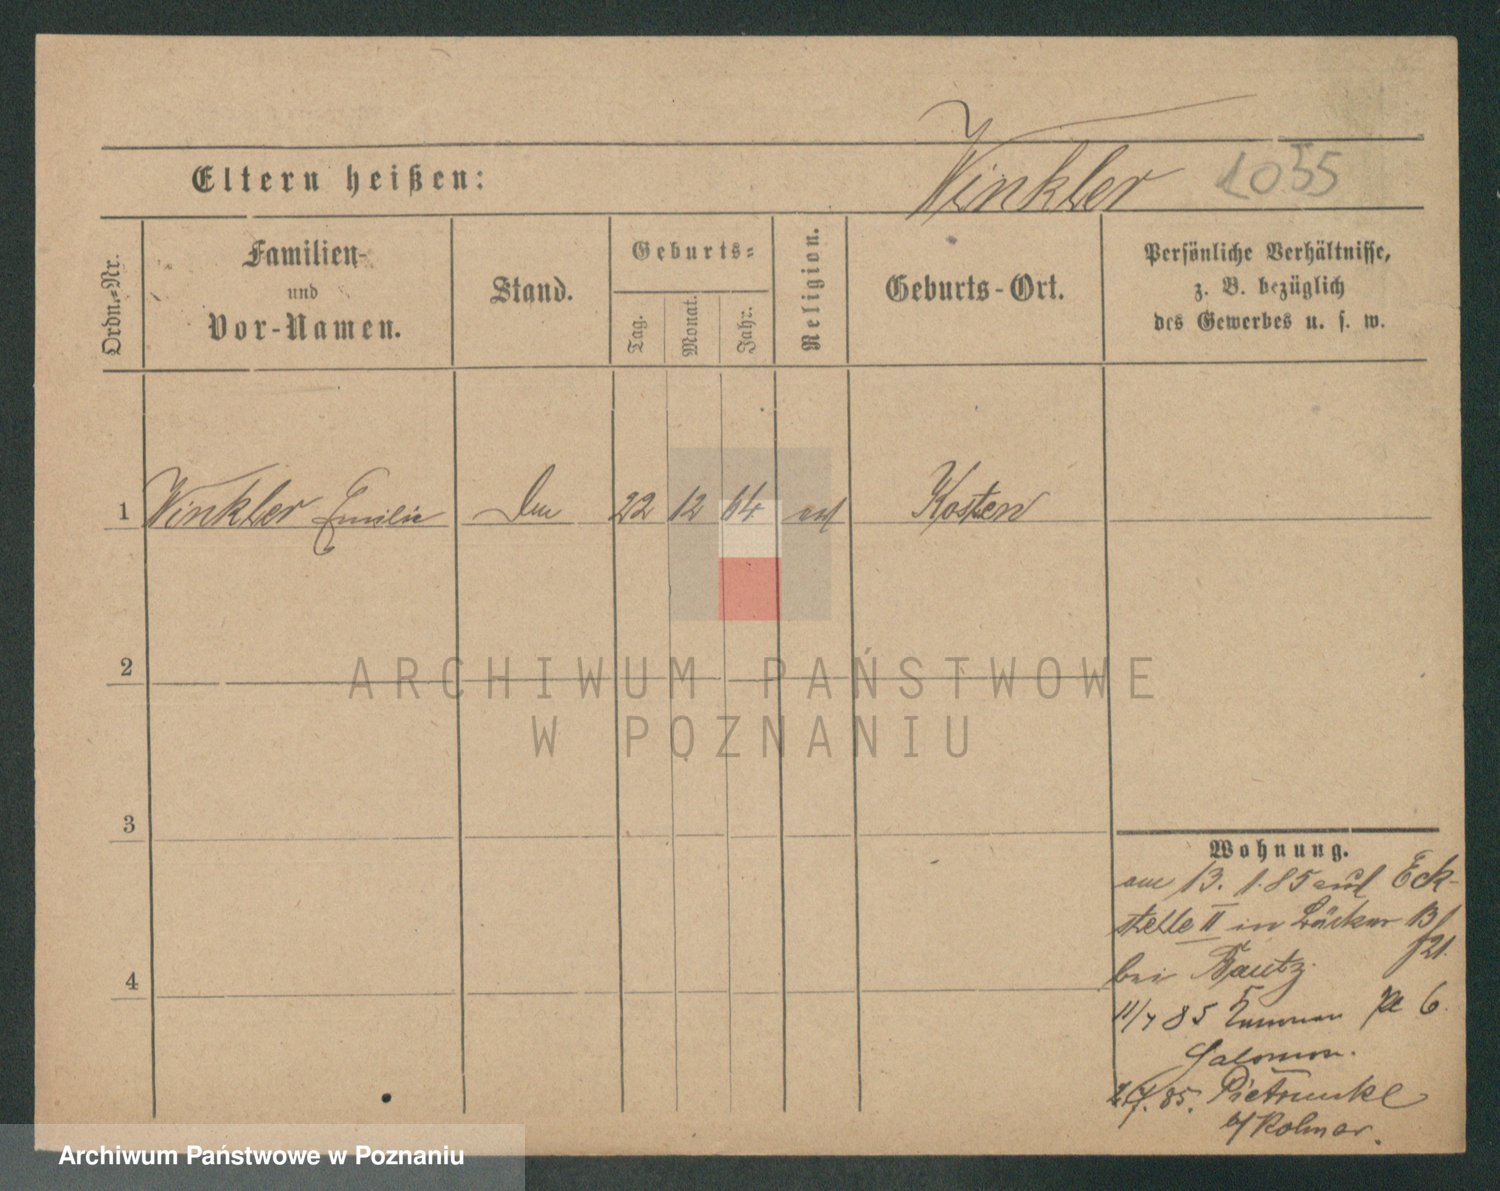 Winkler 1055
Eltern heißen:
Ordn.-Nr.
Familien-
und
Vor-Namen.
Stand.
Geburts-
Tag.
Monat.
Jahr.
Religion.
Geburts-Ort.
Persönliche Verhältnisse,
z. B. bezüglich
des Gewerbes u. s. w.
1 Winkler Emilie 22 12 64 Kosten
2
ARCHIWUM PAŃSTWOWE
W POZNANIU
3
4
Wohnung.
am 13. 1. 85 auf Eck-
stelle II in Bäcker
21.
bei
11/7 85 6.
Salomon.
85. Pietrunke
b/ Kolmar.
Archiwum Państwowe w Poznaniu